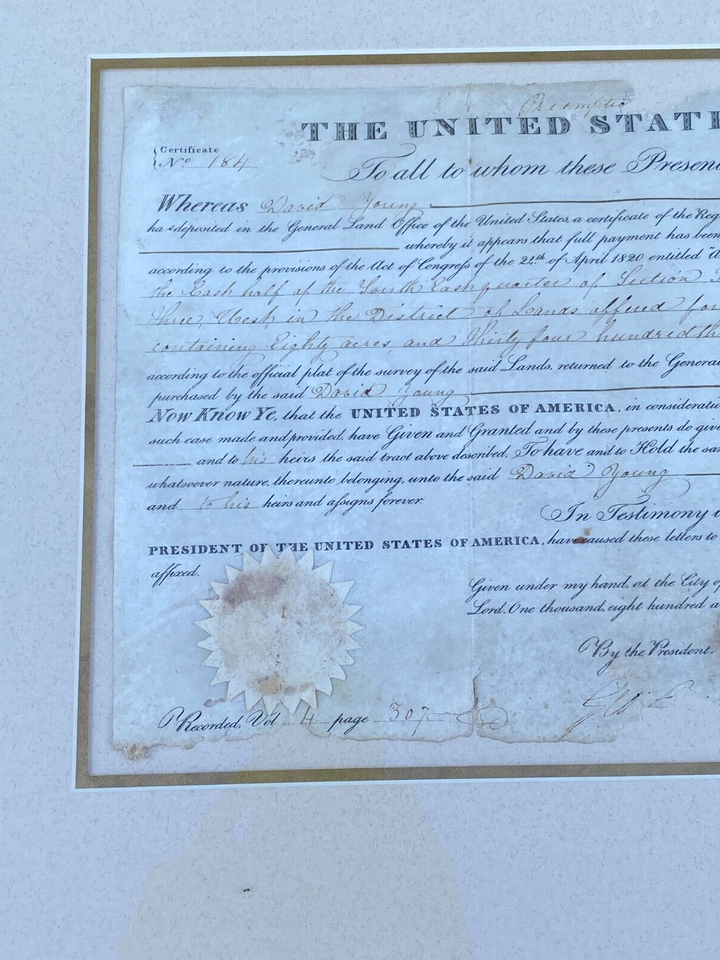 Preemptio
THE UNITED STAT
Certificate
No 184
To all to whom these Presen
Whereas David Young
has deposited in the General Land Office of the United States, a certificate of the Reg
whereby it appears that full payment has been
according to the provisions of the Act of Congress of the 24th of April 1820 entitled "A
the East half of the South East quarter of Section
three, West, in the District of Lands offered for
containing Eighty acres and Thirty four hundredth
according to the official plat of the survey of the said Lands, returned to the General
purchased by the said David Young
Now Know Ye, that the UNITED STATES OF AMERICA, in consideratio
such case made and provided, have Given and Granted and by these presents do give
and to his heirs the said tract above described, To have and to Hold the sa
whatsoever nature, thereunto belonging, unto the said David Young
and to his heirs and assigns forever.
In Testimony
PRESIDENT OF THE UNITED STATES OF AMERICA, have caused these letters to
affixed.
Given under my hand, at the City of
Lord, One thousand, eight hundred a
By the President.
Recorded, Vol 4 page 307